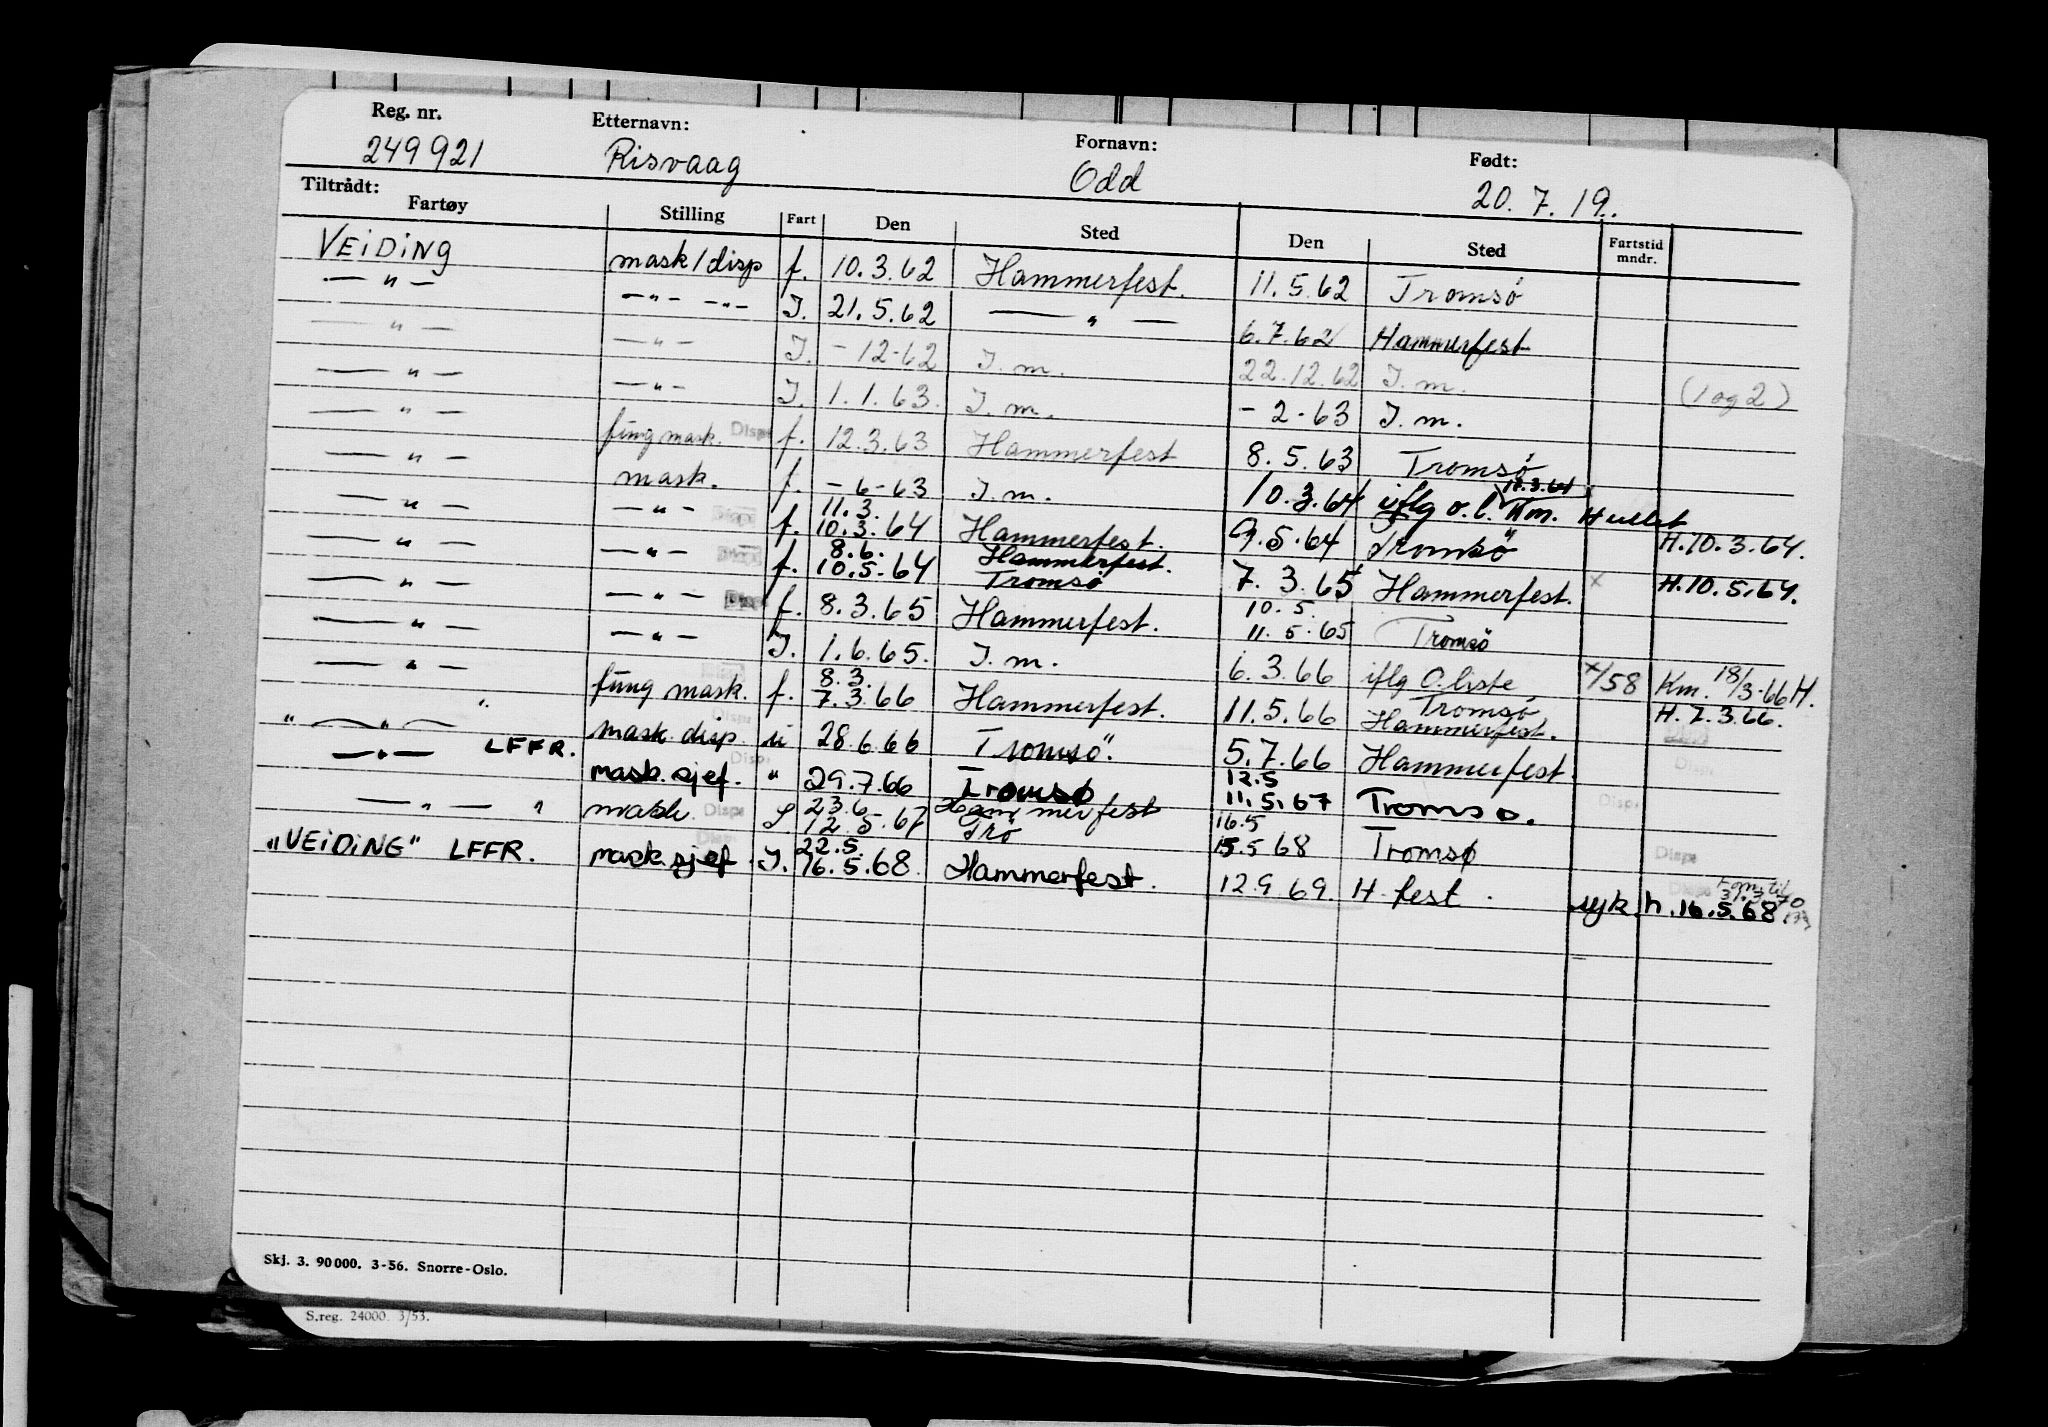 Reg. nr. Etternavn: Fornavn: Født:
249921 Risvaag Odd 20.7.19.
Tiltrådt:
Fartøy Stilling Fart Den Sted Den Sted Fartstid mndr.
VEiDiNg mask/disp f. 10.3.62 Hammerfest. 11.5.62 Tromsø
—„— —„— —„— I. 21.5.62 —„— 6.7.62 Hammerfest
—„— —„— I. -12-62 I.m. 22.12.62 I.m. (1 og 2)
—„— —„— I. 1.1.63. I.m. -2-63 I.m.
—„— fung mask. Disp f. 12.3.63 Hammerfest 8.5.63 Tromsø
—„— mask. f. -6-63 I.m. 10.3.64 iflg o.l. Km. Hullet
—„— —„— Disp f. 11.3. 10.3.64 Hammerfest. 9.5.64 Tromsö H.10.3.64.
—„— —„— Disp f. 8.6. 10.5.64 Hammerfest. Tromsö 7.3.65 Hammerfest. x H.10.5.64.
—„— —„— f. 8.3.65 Hammerfest. 10.5 11.5.65 Tromsö
—„— —„— I. 1.6.65. I.m. 6.3.66 iflg O.liste x/58 Km. 18/3-66 H.
—„— fung mask. f. 8.3. 7.3.66 Hammerfest. 11.5.66 Tromsö Hammerfest. H.7.3.66.
„ —„— mask disp u 28.6.66 Tromsö. 5.7.66 Hammerfest.
—„— LFFR. mask.sjef. Disp „ 29.7.66 Tromsø 12.5 11.5.67 Tromsø. Disp
—„— „ mask. Disp S 23.6 12.5.67 Hammerfest Trö 16.5 15.5 68 Tromsø Disp
„VEiDiNG” LFFR. mask.sjef. I. 22.5. 16.5.68. Hammerfest. 12.9.69. H-fest. syk. h.16.5.68
Skj. 3. 90000. 3-56. Snorre-Oslo.
S.reg. 24000. 3/53.